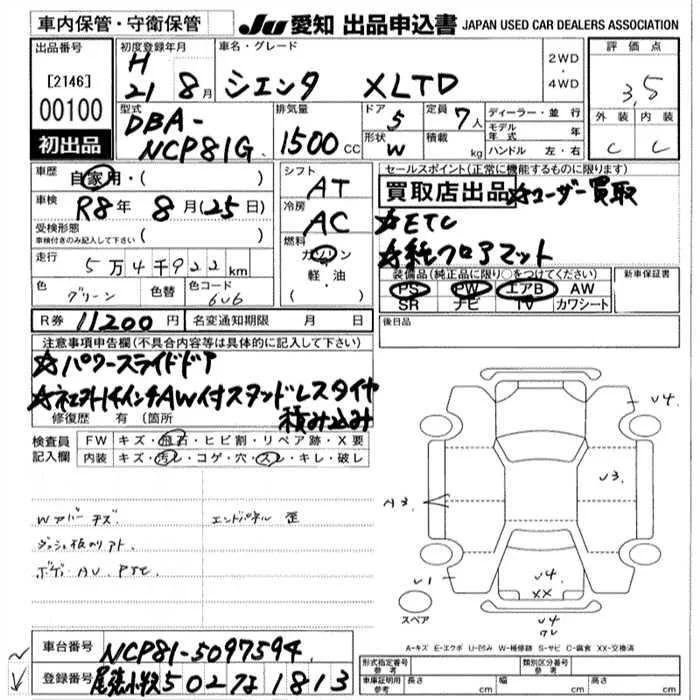 車内保管・守衛保管
JU 愛知 出品申込書 JAPAN USED CAR DEALERS ASSOCIATION
出品番号
[2146]
00100
初出品
初度登録年月
H
21 8 月
車名・グレード
シエンタ XLTD
2WD
・
4WD
評価点
3.5
外装 内装
C C
型式
DBA-
NCP81G
排気量
1500 CC
ドア 5
形状 W
定員 7 人
積載 kg
ディーラー・並行
モデル年式 年
ハンドル 左・右
車歴 自家用・( )
車検 R8 年 8 月 (25 日)
受検形態
車検付きのみ記入して下さい ( )
走行 5 万 4 千 9 2 2 km
色 グリーン 色替 色コード 6V6
シフト
AT
冷房
AC
燃料
ガソリン
・
軽・油
( )
セールスポイント(正常に機能するものに限ります)
買取店出品 ☆ユーザー買取
☆ETC
☆純フロアマット
装備品(純正品に限り○をつけてください)
PS PW エアB AW
SR ナビ TV カワシート
新車保証書
後日品
R券 11200 円 名変通知期限 月 日
注意事項申告欄(不具合内容等は具体的に記入して下さい)
☆パワースライドドア
☆ 14インチAW付スタッドレスタイヤ
積み込み
修復歴 有 (箇所
検査員
記入欄
FW キズ・飛石・ヒビ割・リペア跡・X要
内装 キズ・汚レ・コゲ・穴・スレ・キレ・破レ
Wアバーキズ
エンドパネル 歪
ダッシュ板のリアト
ボデーAU. PSC.
A3
U4
U3
U1
U4
XX
U4
スペア
A-キズ E-エクボ U-凹み W-補修跡 S-サビ C-腐食 XX-交換済
車台番号 NCP81-5097594
登録番号 尾張小牧 502 な 1813
形式指定番号
参考
類別区分番号
参考
車庫証明用
参考
長さ cm 幅 cm 高さ cm